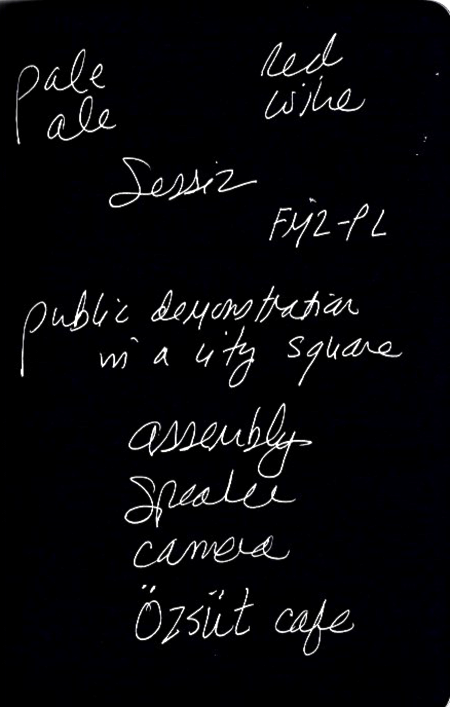 pale
ale
red
wine
Sessiz
public demonstration
in a city square
assembly
speaker
camera
Özsüt cafe